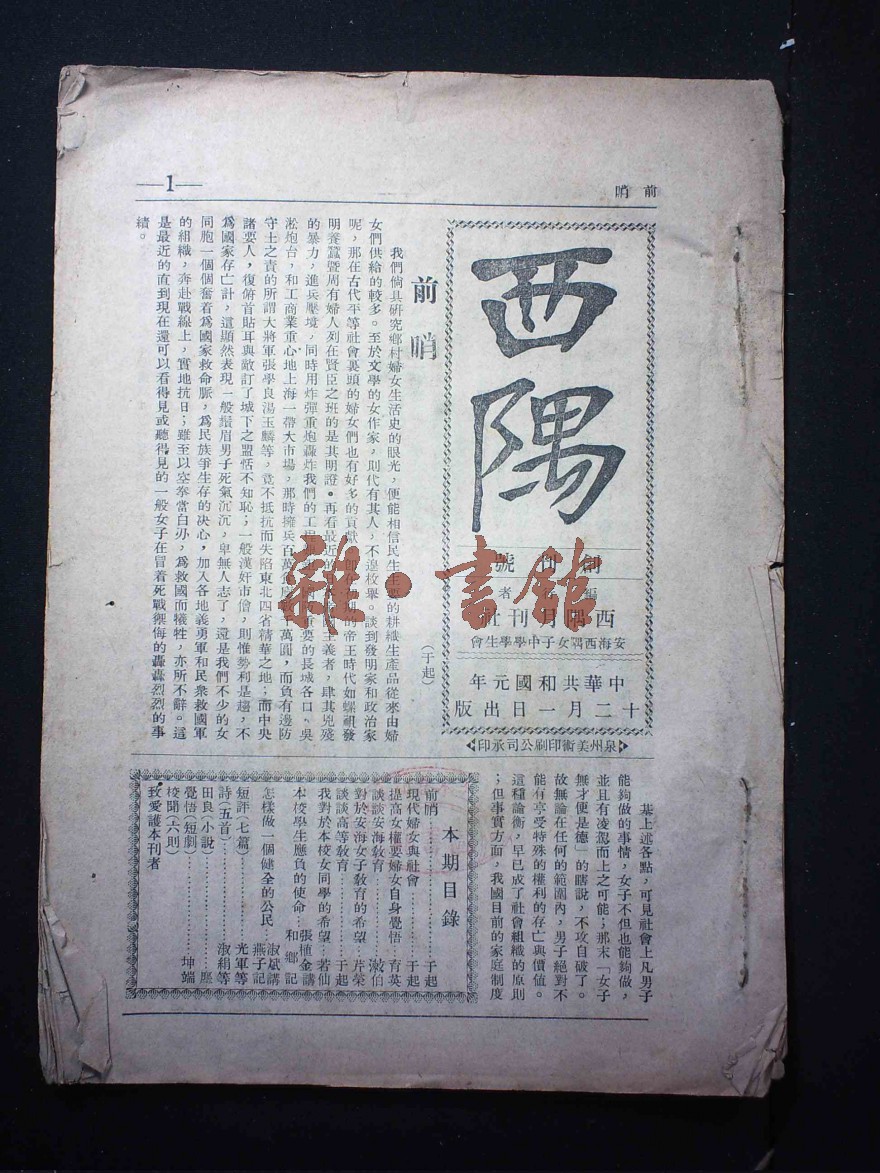 前哨
—1—
西隅
創刊號
編者
西隅月刊社
安海西隅女子中學學生會
中華共和國元年
十二月一日出版
泉州美術印刷公司承印
前哨
(于起)
我們倘具研究鄉村婦女生活史的眼光，便能相信民生主要的耕織生產品從來由婦
女們供給的較多。至於文學的女作家，則代有其人，不遑枚舉。談到發明家和政治家
呢，那在古代平等社會裏頭的婦女們也有好多的貢獻
帝王時代如螺祖發
明養蠶暨周有婦人列在賢臣之班的是其明證。再看最近的日
主義者，肆其兇殘
的暴力，進兵壓境，同時用炸彈重炮轟炸我們的工
重要的長城各口、吳
淞炮台，和工商業重心地上海一帶大市場，那時擁兵百萬
萬圓，而負有邊防
守土之責的所謂大將軍張學良湯玉麟等，竟不抵抗而失陷東北四省精華之地；而中央
諸要人，復俯首貼耳與敵訂了城下之盟恬不知恥；一般漢奸市儈，則惟勢利是趨，不
爲國家存亡計，這顯然表現一般鬚眉男子死氣沉沉，卑無人志了，還是我們不少的女
同胞一個個奮着爲國家救命脈，爲民族爭生存的決心，加入各地義勇軍和民衆救國軍
的組織，奔赴戰線上，實地抗日；雖至以空拳當白刃，爲救國而犧牲，亦所不辭。這
是最近的直到現在還可以看得見或聽得見的一般女子在冒着死戰禦侮的轟轟烈烈的事
績。
基上述各點，可見社會上凡男子
能夠做的事情，女子不但也能夠做，
並且有凌翥而上之可能；那末「女子
無才便是德」的瞎說，不攻自破了。
故無論在任何的範圍內，男子絕對不
能有享受特殊的權利的存亡與價値。
這種論衡，早已成了社會組織的原則
；但事實方面，我國目前的家庭制度
本期目錄
前哨…………于起
現代婦女與社會…………于起
提高女權要婦女自身覺悟…育英
談談安海教育…………漱伯
對於安海女子教育的希望…芹榮
談談高等教育…………于起
我對於本校女同學的希望…若仙
本校學生應負的使命…張植金講
和鄉記
怎樣做一個健全的公民…淑斌講
燕子記
短評(七篇)…………光軍等
詩(五首)…………淑絹等
田良(小說)…………塵
覺悟(短劇)…………坤端
校聞(六則)
致愛護本刊者
雜·書館